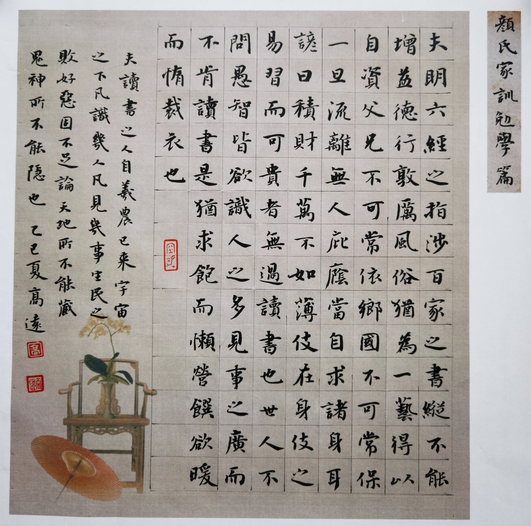 顏氏家訓勉學篇
夫明六經之指涉百家之書縱不能
增益德行敦厲風俗猶為一藝得以
自資父兄不可常依鄉國不可常保
一旦流離無人庇廕當自求諸身耳
諺曰積財千萬不如薄伎在身伎之
易習而可貴者無過讀書也世人不
問愚智皆欲識人之多見事之廣而
不肯讀書是猶求飽而懶營饌欲暖
而惰裁衣也
夫讀書之人自羲農已來宇宙
之下凡識幾人凡見幾事生民之
敗好惡固不足論天地所不能藏
鬼神所不能隱也 乙巳夏高遠